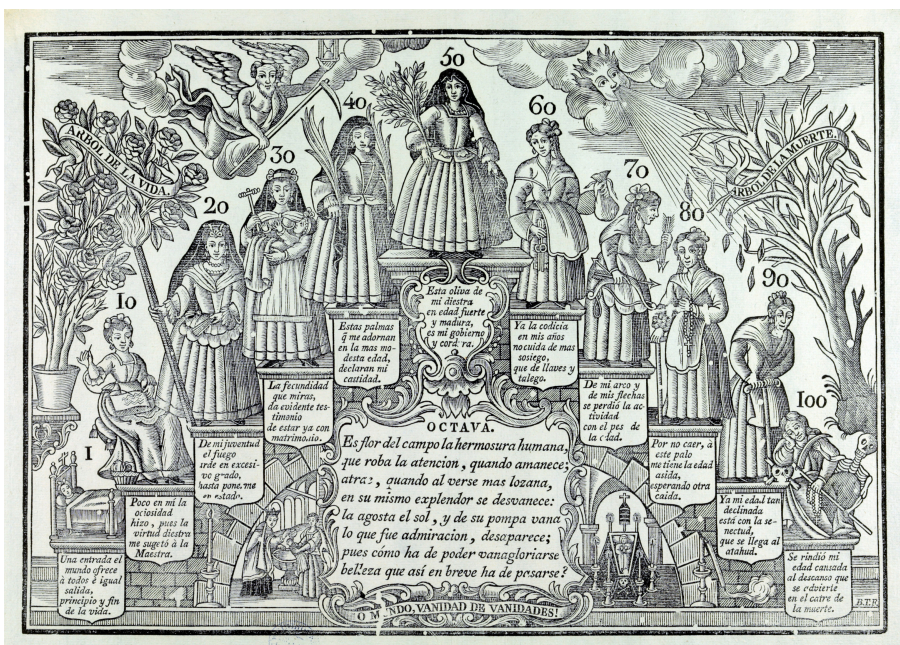 ARBOL DE LA VIDA.
ARBOL DE LA MUERTE.
1
10
20
30
40
50
60
70
80
90
100
Una entrada el
mundo ofrece
à todos è igual
salida,
principio y fin
de la vida.
Poco en mí la
ociosidad
hizo, pues la
virtud diestra
me sugetó à la
Maestra.
De mi juventud
el fuego
arde en excesi-
vo grado,
hasta pone.me
en estado.
La fecundidad
que miras,
da evidente tes-
timonio
de estar ya con
matrimonio.
Estas palmas
q̃ me adornan
en la mas mo-
desta edad,
declaran mi
castidad.
Esta oliva de
mi diestra
en edad fuerte
y madura,
es mi gobierno
y cord.ra.
Ya la codicia
en mis años
no cuida de mas
sosiego,
que de llaves y
talego.
De mi arco y
de mis flechas
se perdió la ac-
tividad
con el pes de
la edad.
Por no caer, à
este palo
me tiene la edad
asida,
esperando otra
caida.
Ya mi edad tan
declinada
está con la se-
nectud,
que se llega al
atahud.
Se rindió mi
edad cansada
al descanso que
se advierte
en el catre de
la muerte.
B.T.R.
OCTAVA.
Es flor del campo la hermosura humana,
que roba la atencion, quando amanece;
atrae, quando al verse mas lozana,
en su mismo explendor se desvanece:
la agosta el sol, y de su pompa vana
lo que fue admiracion, desaparece;
pues cómo ha de poder vanagloriarse
belleza que así en breve ha de pasarse?
O MUNDO, VANIDAD DE VANIDADES!